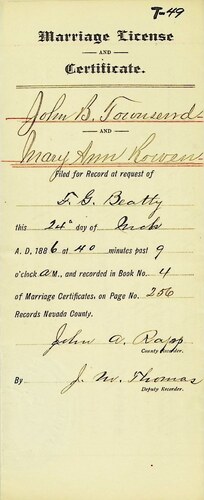 T-49
Marriage License
AND
Certificate.
John B. Townsend
AND
Mary Ann Rowen
Filed for Record at request of
F. G. Beatty
this 24th day of Mch
A. D. 1886 at 40 minutes past 9
o'clock A. M., and recorded in Book No. 4
of Marriage Certificates, on Page No. 256
Records Nevada County.
John A. Rapp
County Recorder.
By J. M. Thomas
Deputy Recorder.